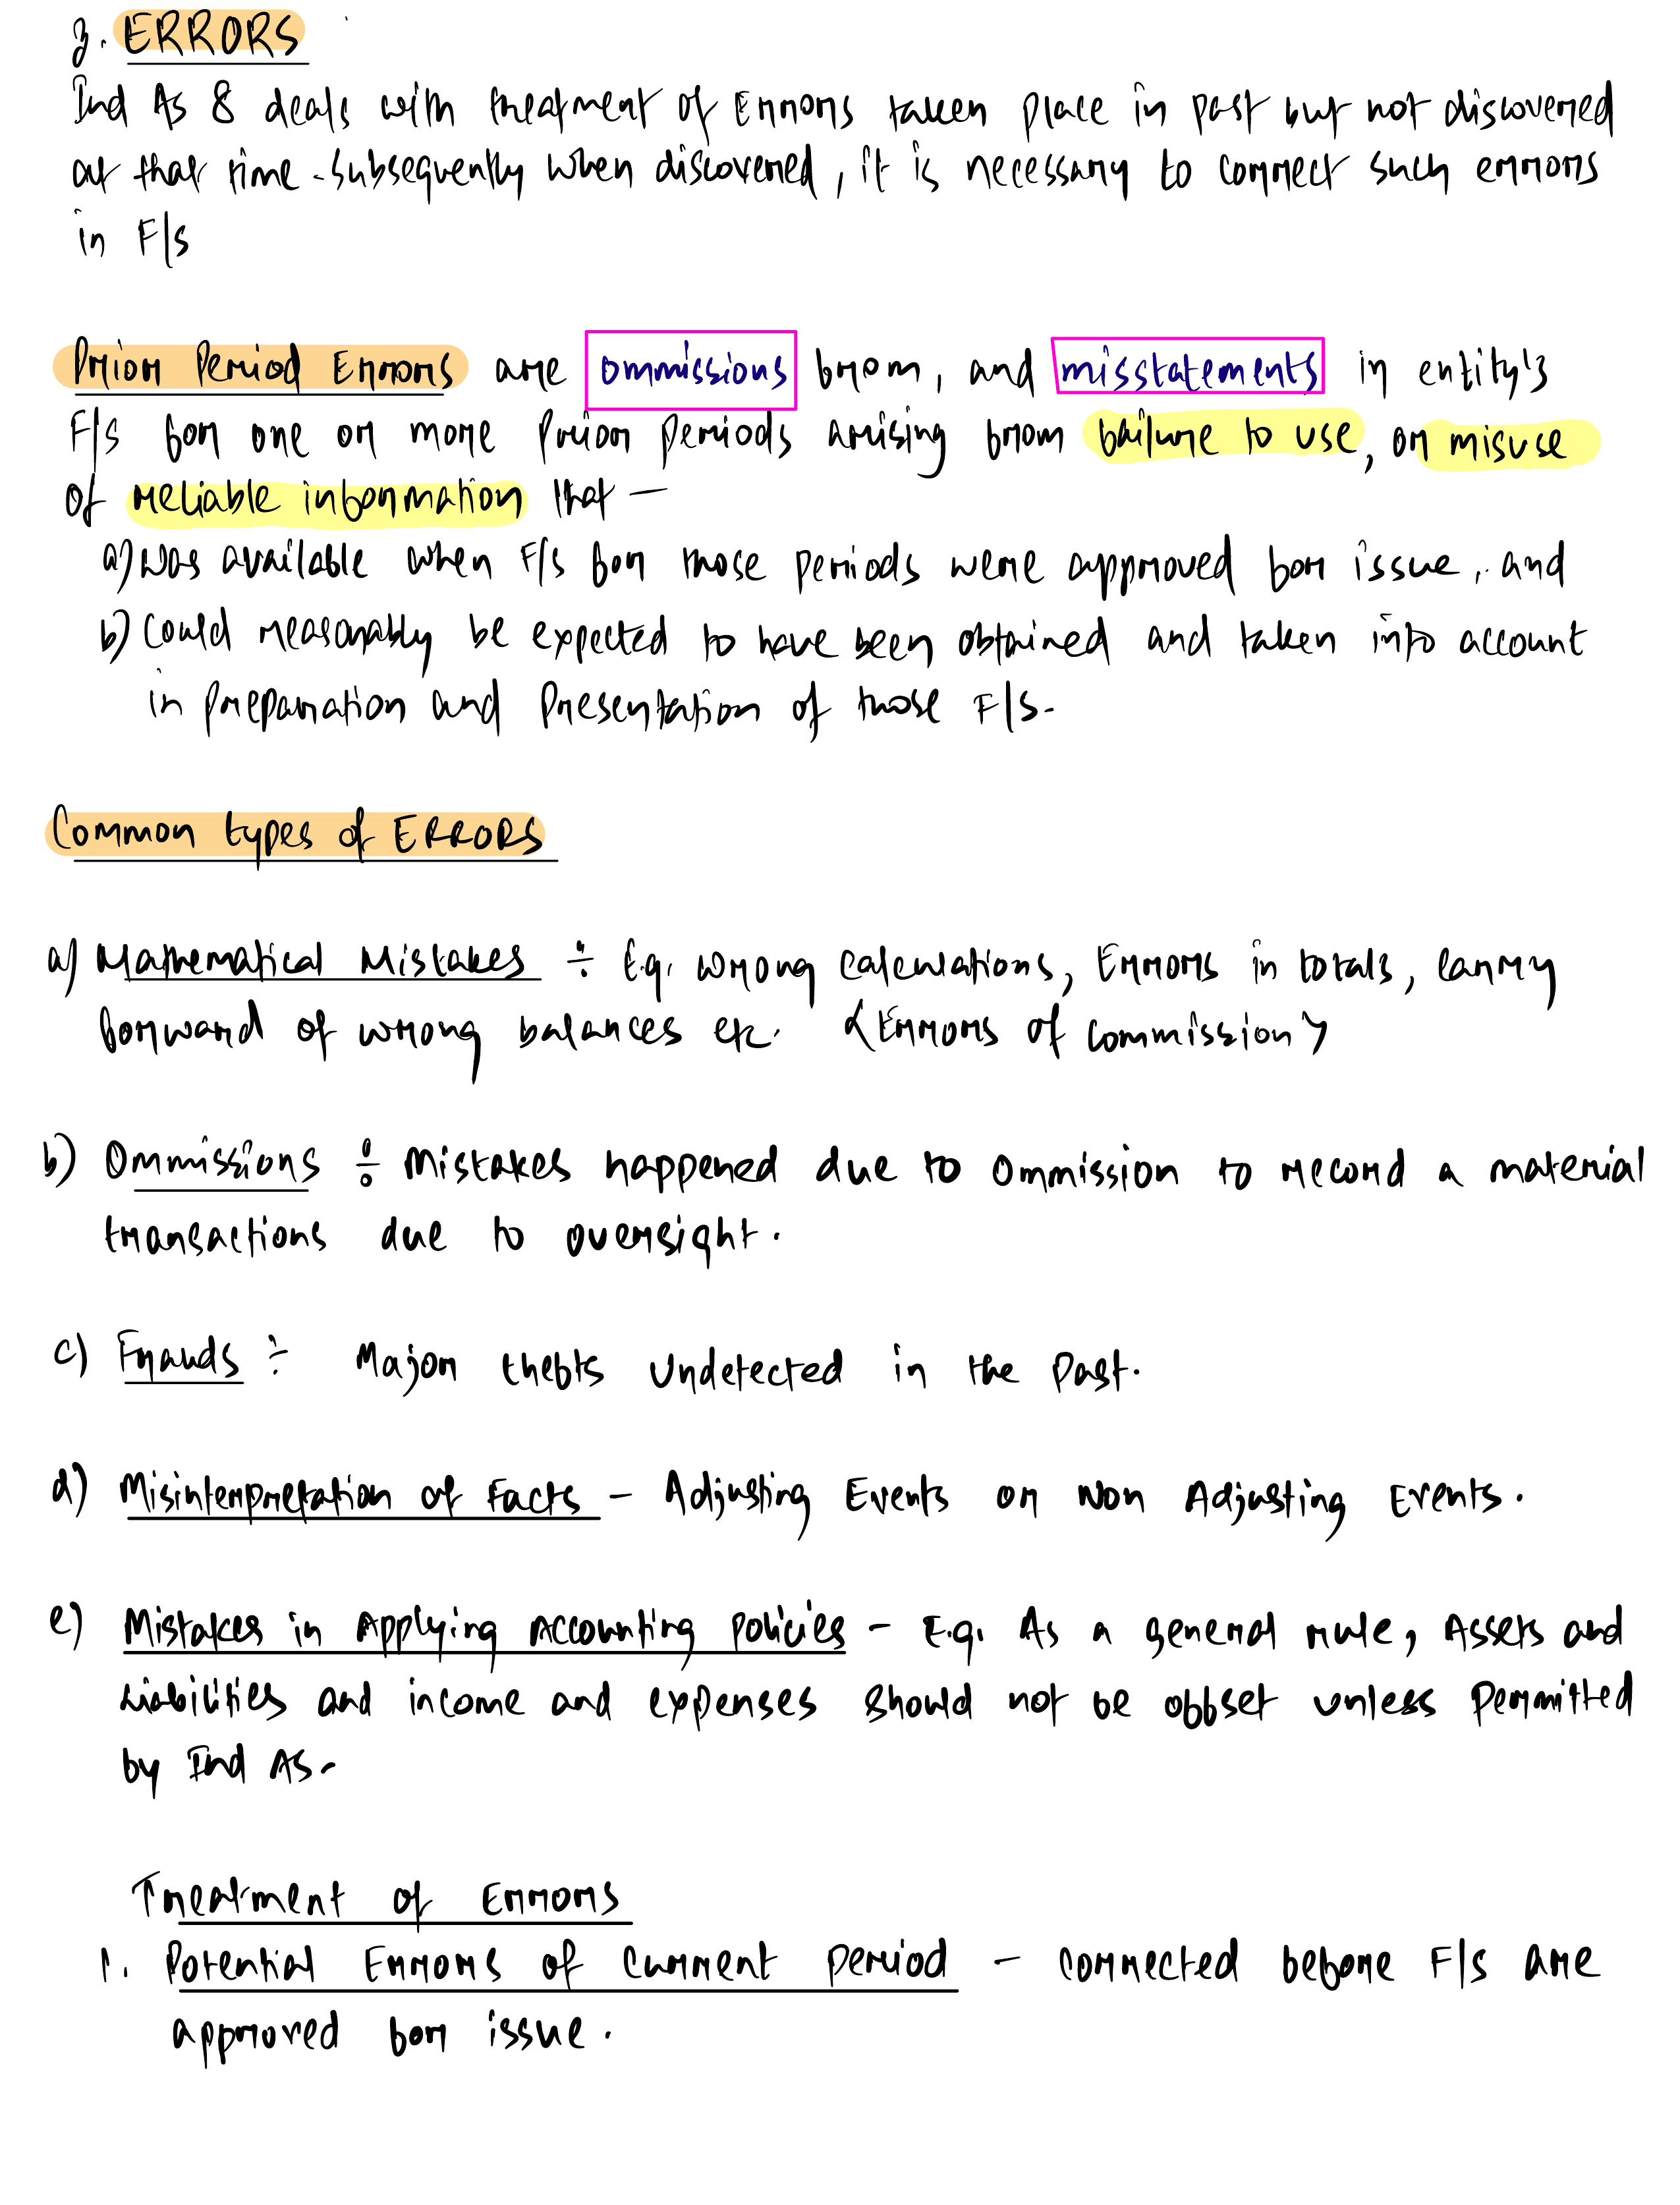 3. ERRORS
Ind As 8 deals with treatment of Errors taken place in past but not discovered
at that time. Subsequently when discovered, it is necessary to correct such errors
in F/s
Prior Period Errors are ommissions from, and misstatements in entity's
F/s for one or more Prior Periods arising from failure to use, or misuse
of reliable information that —
a) Was available when F/s for those periods were approved for issue, and
b) Could reasonably be expected to have been obtained and taken into account
in preparation and Presentation of those F/s.
Common types of ERRORS
a) Mathematical Mistakes ÷ E.g. wrong calculations, Errors in totals, carry
forward of wrong balances etc. <Errors of commission>
b) Ommissions ÷ Mistakes happened due to Ommission to record a material
transactions due to oversight.
c) Frauds ÷ Major thefts undetected in the Past.
d) Misinterpretation of Facts - Adjusting Events or Non Adjusting Events.
e) Mistakes in Applying Accounting policies - E.g. As a general rule, Assets and
Liabilities and income and expenses should not be offset unless Permitted
by Ind As.
Treatment of Errors
1. Potential Errors of Current Period - corrected before F/s are
approved for issue.